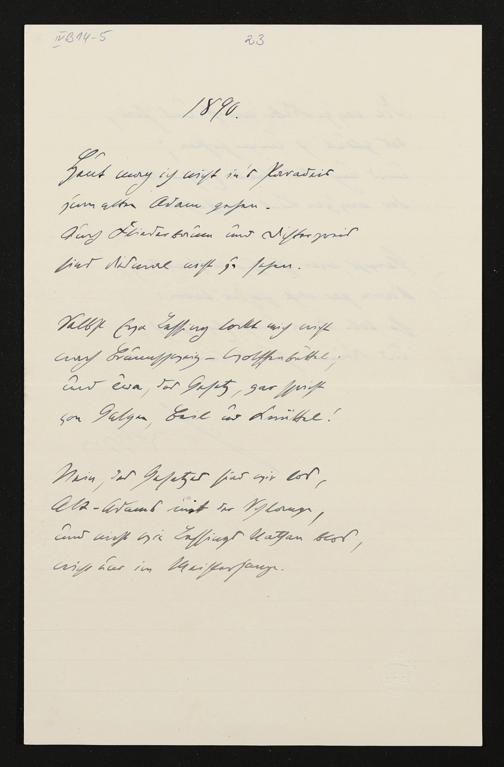 IV B 14-5
23
1890.
Heut mag ich nicht in's Paradeis
zum alten Adam gehen.
Auch Fliederbäum und
sind diesmal nicht zu sehen.
Selbst Lessing lockt mich nicht
nach Braunschweig-Wolffenbüttel,
und Eva, das Gesetz, gar spricht
von Galgen, Beil und Knüttel!
Nein, des Gesetzes sind wir los,
Alt-Adams mit der Schlange,
und nicht wie Lessings Nathan blos,
nicht nur im Meistersange.